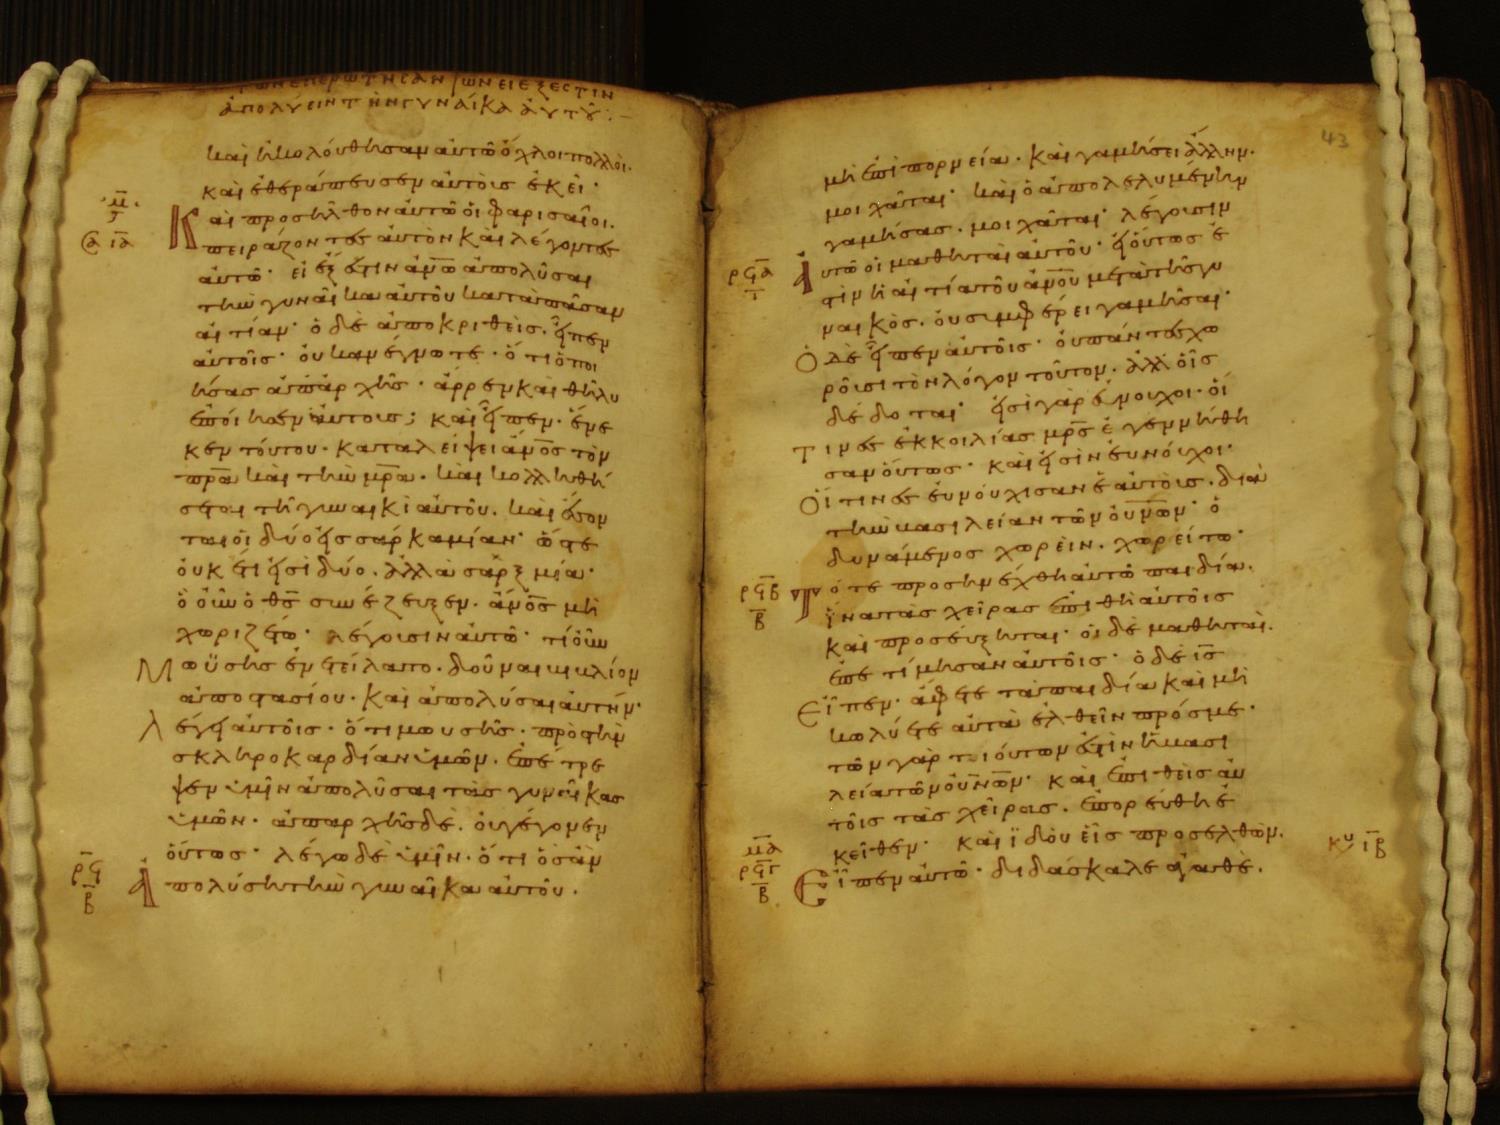 των επερωτησαντων ει εξεστιν
ἀπολύειν τὴν γυναίκα ἀυτοῦ:
καὶ ἠκολούθησαν αυτῶ ὄχλοι πολλοί.
καὶ ἐθεράπευσεν ἀυτοὺσ ἐκεῖ·
μ̅
Καὶ προσῆλθον ἀυτῶ ὁι φαρισαῖοι.
ια̅
πειράζοντεσ ἀυτὸν καὶ λέγοντεσ
ἀυτῶ· εἰ ἔξεστιν ἀν̅ω ἀπολῦσαι
τὴν γυναῖκα ἀυτοῦ κατὰ πᾶσαν
αἰτίαν· ὁ δὲ ἀποκριθεὶσ. εἶπεν
ἀυτοῖσ· ὀυκ ἀνέγνωτε· ὅτι ὁ ποι
ήσασ ἀπαρχῆσ· ἄρρεν καὶ θῆλυ
ἐποίησεν ἀυτουσ; καὶ εἶπεν· ἕνε
κεν τούτου· καταλείψει ἄν̅οσ τὸν
πρ̅α καὶ τὴν μρ̅α. καὶ κολληθή
σεται τῆ γυναικὶ ἀυτοῦ. καὶ ἔσον
ται ὁι δύο εἰσ σάρκα μίαν· ὥστε
ὀυκ ἔτι εἰσὶ δύο. ἀλλὰ σάρξ μία·
ὃ ὀῦν ὁ θ̅σ συνέζευξεν. ἄν̅οσ μὴ
χωριζέτω· λέγουσιν ἀυτῶ· τί ὀῦν
Μωϋσῆσ ἐνετείλατο. δοῦναι βιβλίον
ἀποστασίου. καὶ ἀπολύσαι ἀυτήν·
Λέγει ἀυτοῖσ· ὅτι μωυσῆσ. πρὸσ τὴν
σκληροκαρδίαν ὑμῶν. ἐπέτρε
ψεν ὑμῖν ἀπολῦσαι τὰσ γυναῖκασ
ὑμῶν. ἀπαρχῆσ δὲ. ὀυ γέγονεν
ὅυτωσ· λέγω δὲ ὑμῖν. ὅτι ὃσ ἂν
ρϟ̅
β̅
Ἀπολύσῃ τὴν γυναῖκα ἀυτοῦ.
43
μὴ ἐπὶ πορνεία. καὶ γαμήσει ἄλλην.
μοιχᾶται· καὶ ὁ ἀπολελυμένην
γαμήσασ. μοιχᾶται· λέγουσιν
ρϟα̅
Ἀυτῶ ὁι μαθηταὶ ἀυτοῦ· εἰ ὅυτωσ ἐ
στὶν ἡ αἰτία τοῦ ἀν̅ου μετὰ τῆσ γυ
ναικόσ. ὀυ συμφέρει γαμῆσαι·
Ὁ δὲ εἶπεν ἀυτοῖσ· ὀυ πάντεσ χω
ροῦσι τὸν λόγον τοῦτον. ἀλλ ὁῖσ
δέδοται· εἰσὶ γὰρ ἐυνουχοι. ὁί
τινεσ ἐκ κοιλίασ μρ̅σ ἐγεννήθη
σαν ὅυτωσ· καὶ εἰσὶν ἐυνούχοι·
Ὁίτινεσ ἐυνούχισαν ἑαυτοὺσ. διὰ
τὴν βασιλείαν τῶν ὀυν̅ων· ὁ
δυνάμενοσ χωρεῖν. χωρείτω·
ρϟβ̅
β̅
Τότε προσηνέχθη ἀυτῶ παιδία.
ἵνα τὰσ χεῖρασ ἐπιθῆ ἀυτοῖσ
καὶ προσεύξηται· ὁι δὲ μαθηταὶ.
ἐπετίμησαν ἀυτοῖσ· ὁ δὲ ι̅σ
Εἶπεν· ἄφετε τὰ παιδία καὶ μὴ
κωλύετε ἀυτὰ ἐλθεῖν πρόσ με·
τῶν γὰρ τοιούτων ἐστὶν ἡ βασι
λεία τῶν ὀυν̅ων· καὶ ἐπιθεὶσ ἀυ
τοῖσ τὰσ χεῖρασ. ἐπορεύθη ἐ
κεῖθεν· καὶ ἰδοὺ εἷσ προσελθὼν.
μ̅α
ρϟγ̅
β̅
Εἶπεν ἀυτῶ· διδάσκαλε ἀγαθὲ.
κυ ιβ̅